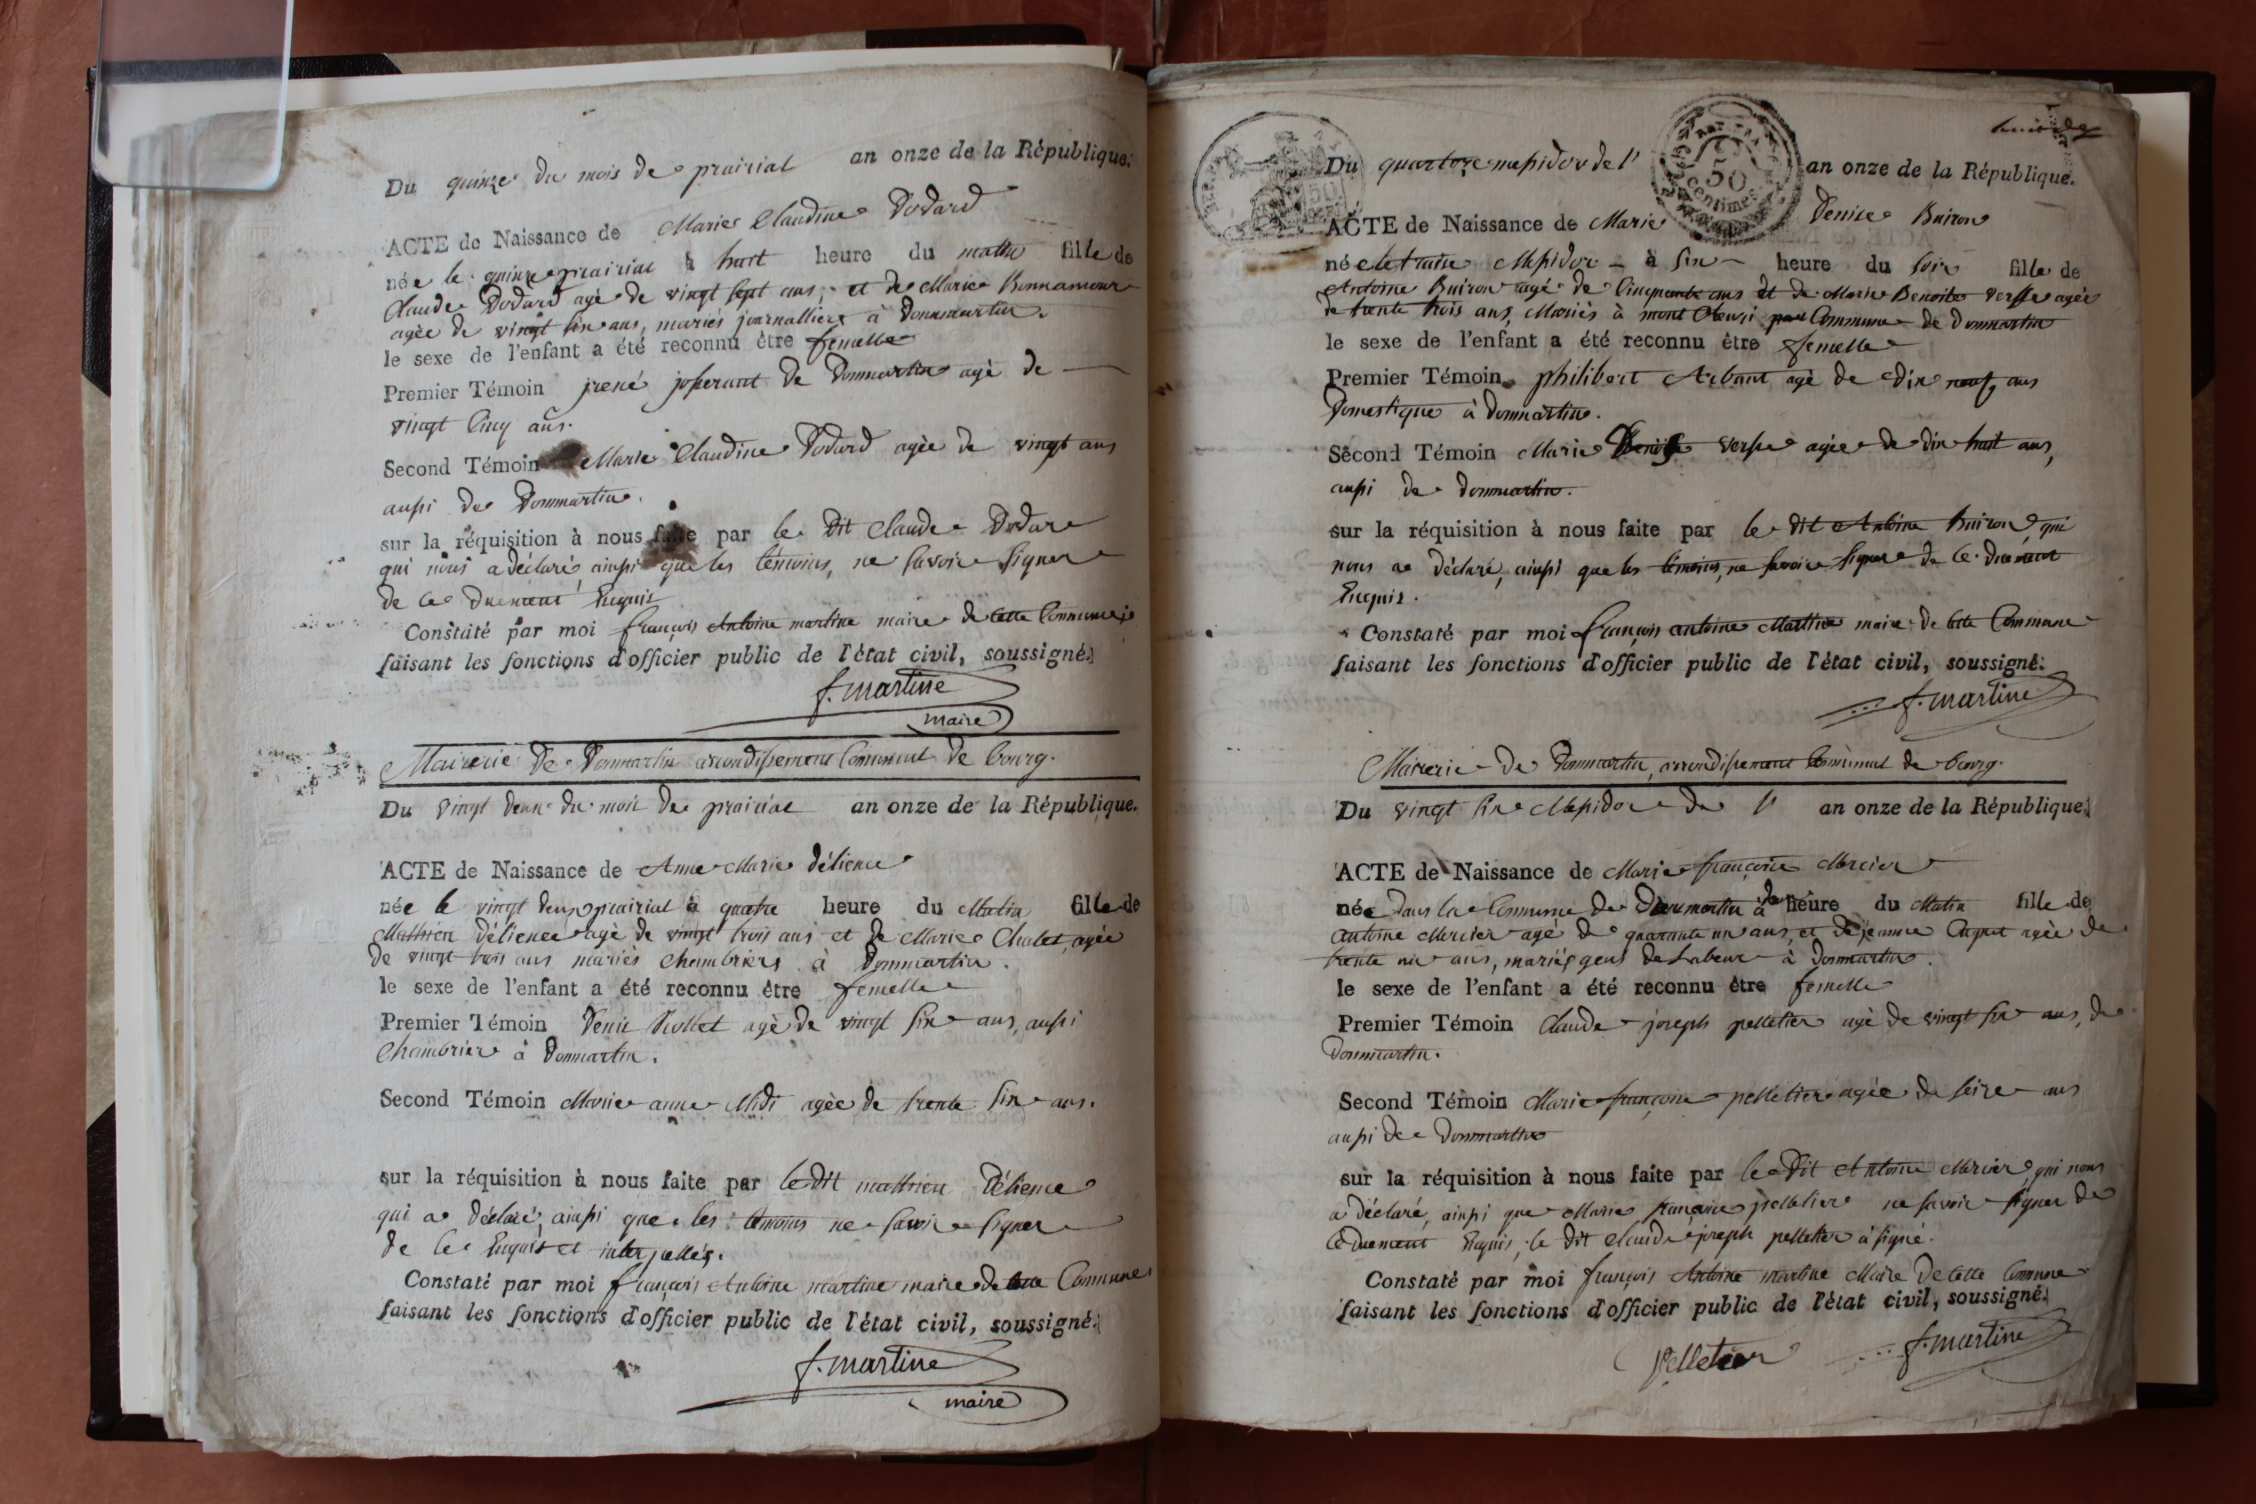 Du quinze du mois de prairial an onze de la République.
ACTE de Naissance de Marie Claudine Dodard
née le quinze prairial à huit heure du matin fille de
Claude Dodard agé de vingt sept ans, et de Marie Bonnamour
agée de vingt six ans, mariés journalliers à Dommartin.
le sexe de l'enfant a été reconnu être femelle
Premier Témoin josserant de Dommartin agé de
vingt cinq ans.
Second Témoin Marie Claudine Dodard agée de vingt ans
aussi de Dommartin.
sur la réquisition à nous faite par le dit Claude Dodar
qui nous a déclaré, ainssi que les témoins, ne savoir signer
de ce duement Enquis
Constaté par moi françois Antoine martine maire de cette Commune
faisant les fonctions d'officier public de l'état civil, soussigné.
f. martine
maire
Mairerie De Dommartin arrondissement Communal de bourg.
Du vingt deux du mois de prairial an onze de la République.
ACTE de Naissance de Anne Marie Délience
née le vingt deux prairial à quatre heure du Matin fille de
Mathieu Délience agé de vingt trois ans et de Marie Chalet, agée
de vingt trois ans mariés chambriers à Dommartin.
le sexe de l'enfant a été reconnu être femelle
Premier Témoin Denis agé de vingt six ans, aussi
Chambrier à Dommartin.
Second Témoin Marie anne Midi agée de trente six ans.
sur la réquisition à nous faite par le dit mathieu Délience
qui a déclaré, ainssi que les témoins ne savoir signer
de ce Enquis et interpellés.
Constaté par moi françois Antoine martine maire de cette Commune
faisant les fonctions d'officier public de l'état civil, soussigné.
f. martine
maire
50
Centimes
Du quartoze messidor de l' an onze de la République.
ACTE de Naissance de Marie Denise Buiron
née le treize Messidor à six heure du soir fille de
Antoine Buiron agé de Cinquante ans et de Marie Benoite Versse agée
de trente trois ans, Mariés à mont Commune de Dommartin
le sexe de l'enfant a été reconnu être femelle
Premier Témoin philibert Arbant agé de dix neuf ans
Domestique à Dommartin.
Second Témoin Marie Denise Versse agée de dix huit ans,
aussi de Dommartin.
sur la réquisition à nous faite par le dit Antoine Buiron, qui
nous a déclaré, ainssi que les témoins, ne savoir signer de ce duement
Enquis.
Constaté par moi françois antoine Martine maire de cette Commune
faisant les fonctions d'officier public de l'état civil, soussigné.
f. martine
Mairerie de Dommartin, arrondissement Communal de bourg.
Du vingt six Messidor de l' an onze de la République.
ACTE de Naissance de Marie françoise Mercier
née Dans la Commune de Dommartin à heure du Matin fille de
antoine Mercier agé de quarante un ans, et de jeanne Caput agée de
trente un ans, mariés gens de Labeur à Dommartin.
le sexe de l'enfant a été reconnu être femelle
Premier Témoin Claude joseph pelletier agé de vingt six ans, de
Dommartin.
Second Témoin Marie françoise pelletier agée de seize ans
aussi de Dommartin
sur la réquisition à nous faite par le dit Antoine Mercier, qui nous
a déclaré, ainssi que Marie françoise pelletier ne savoir signer de
ce duement Enquis, le dit Claude joseph pelletier à signé.
Constaté par moi françois Antoine martine Maire De cette Commune
faisant les fonctions d'officier public de l'état civil, soussigné.
Pelletier f. martine